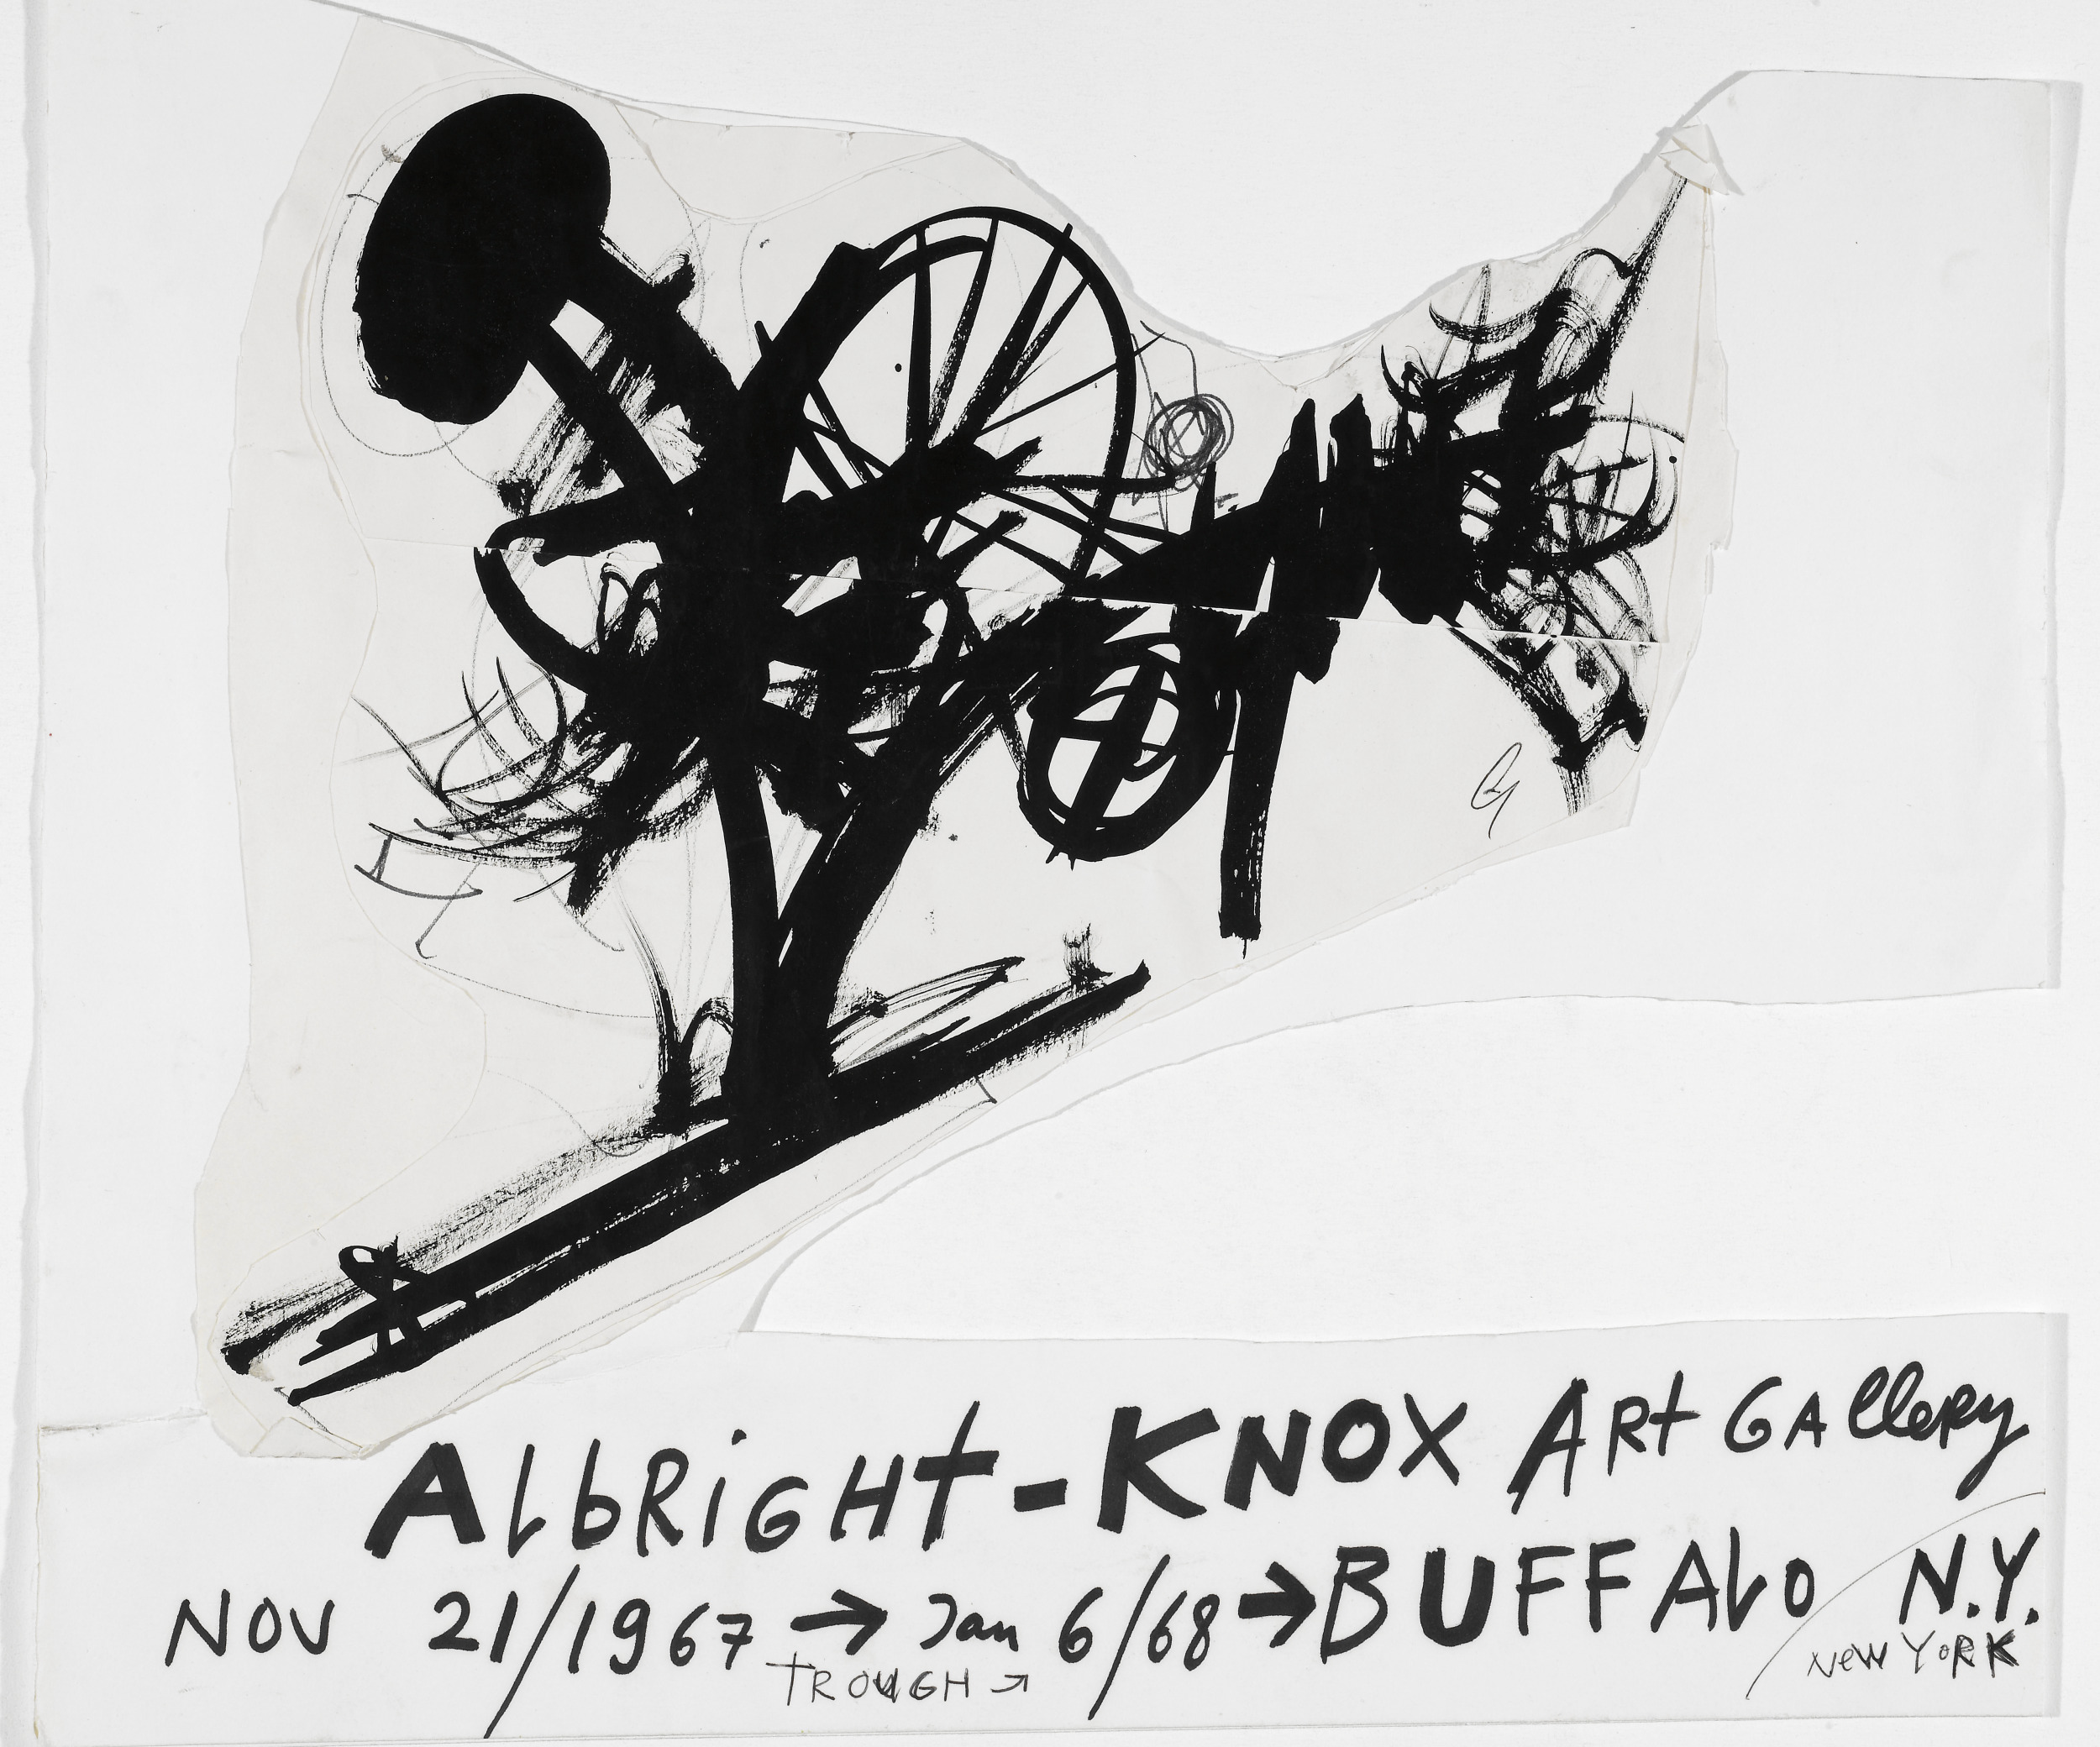 AlbRiGHt-KNOX ARt GAllery
NOV 21/1967 → Jan 6/68 → BUFFALO N.Y.
TROUGH → NeW YoRK